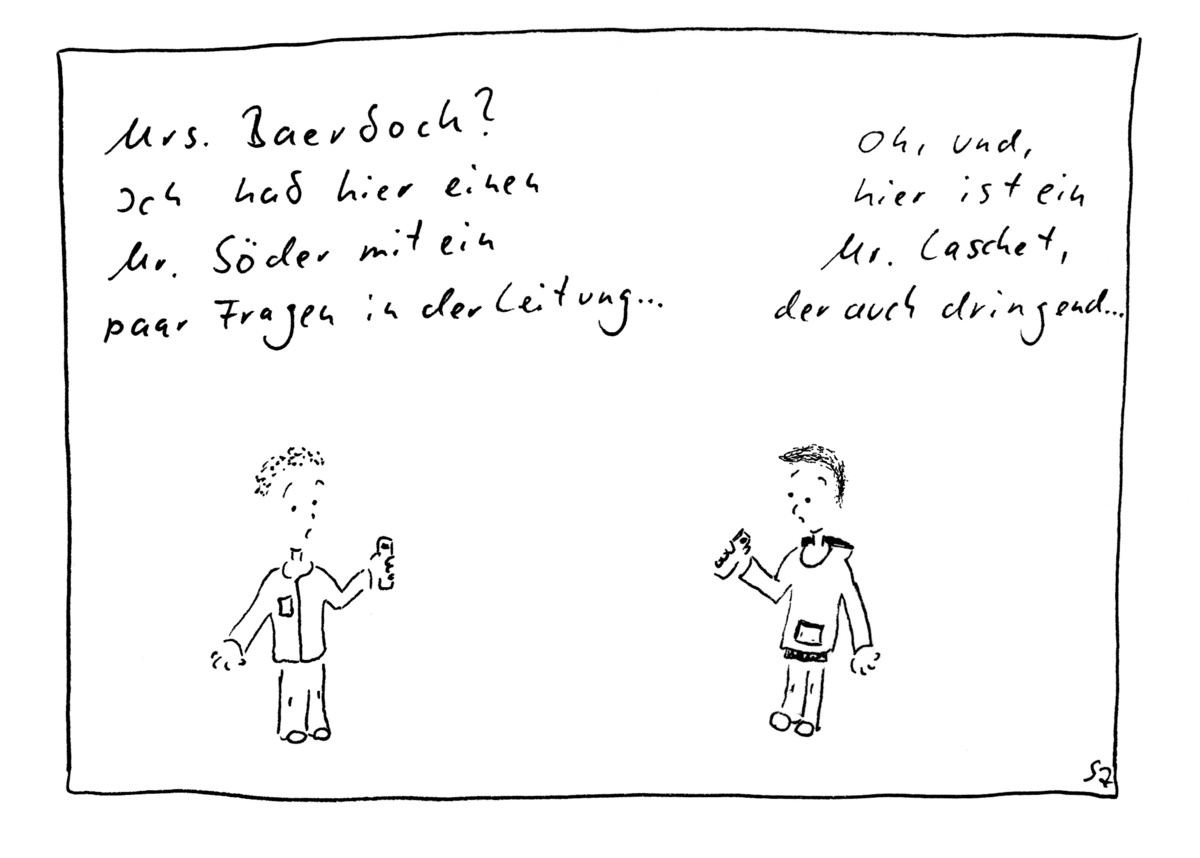 Mrs. Baerbock?
Ich hab hier einen
Mr. Söder mit ein
paar Fragen in der Leitung...
Oh, und,
hier ist ein
Mr. Laschet,
der auch dringend...
SZ